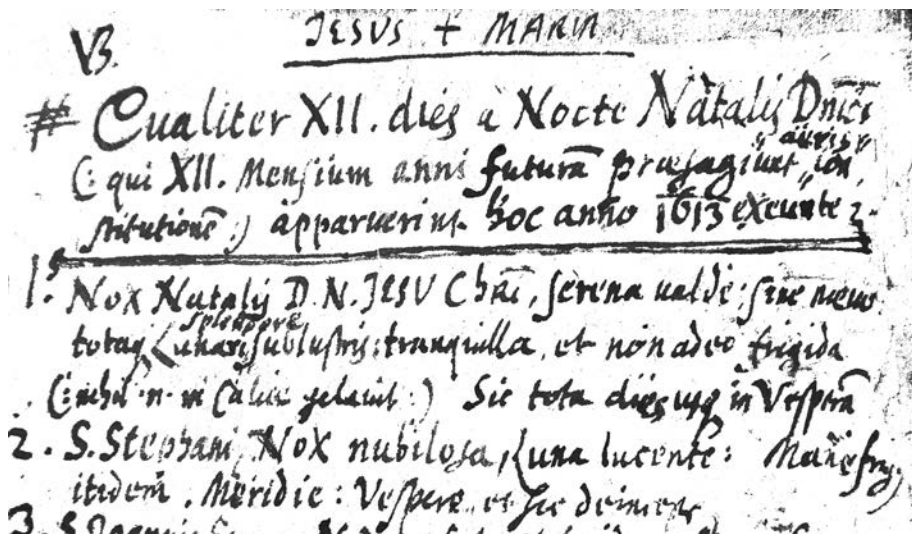 V3.
JESUS + MARIA
# Cualiter XII. dies à Nocte Natalis Dnici
aëris
(: qui XII. Mensium anni futurā præsagiunt con
stitutionē :) apparuerint hoc anno 1613 exeunte
1. Nox Natalis D. N. JESU Chri, serena valde: sine
splendore
totaq Lunari sublustris: tranquilla, et non adeo frigida
(: nihil .n. in gelavit :) Sic tota dies usq in Vesperā
2. S. Stephani Nox nubilosa, Luna lucente: Mane
itidem. Meridie: Vespere et sic
3. S.